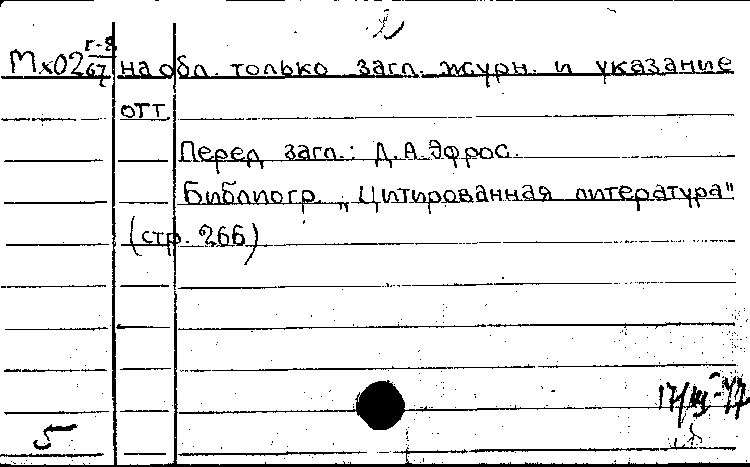 2
Мх02 г-8/67 на обл. только загл. журн. и указание
отт.
Перед загл.: Д.А.Эфрос.
Библиогр. „Цитированная литература"
(стр. 266)
5